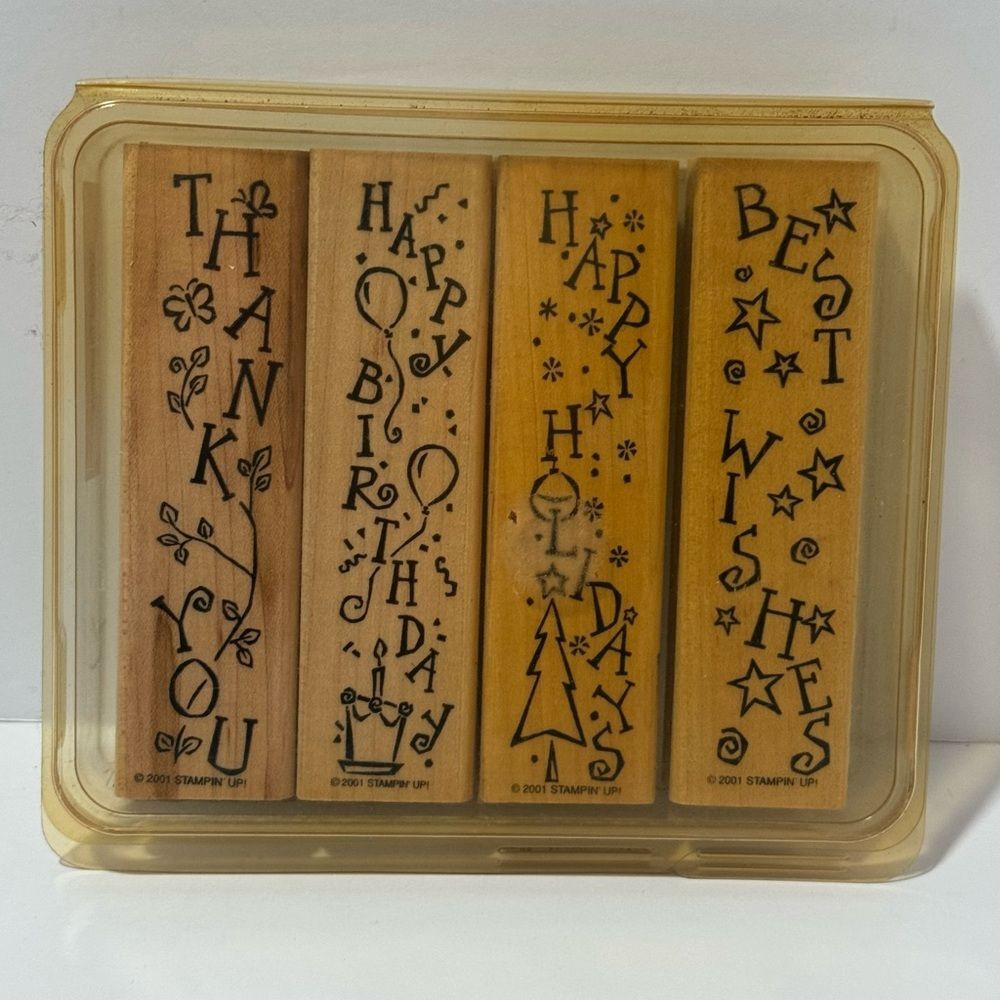 THANK
YOU
© 2001 STAMPIN' UP!
HAPPY
BIRTHDAY
© 2001 STAMPIN' UP!
HAPPY
HOLIDAYS
© 2001 STAMPIN' UP!
BEST
WISHES
© 2001 STAMPIN' UP!